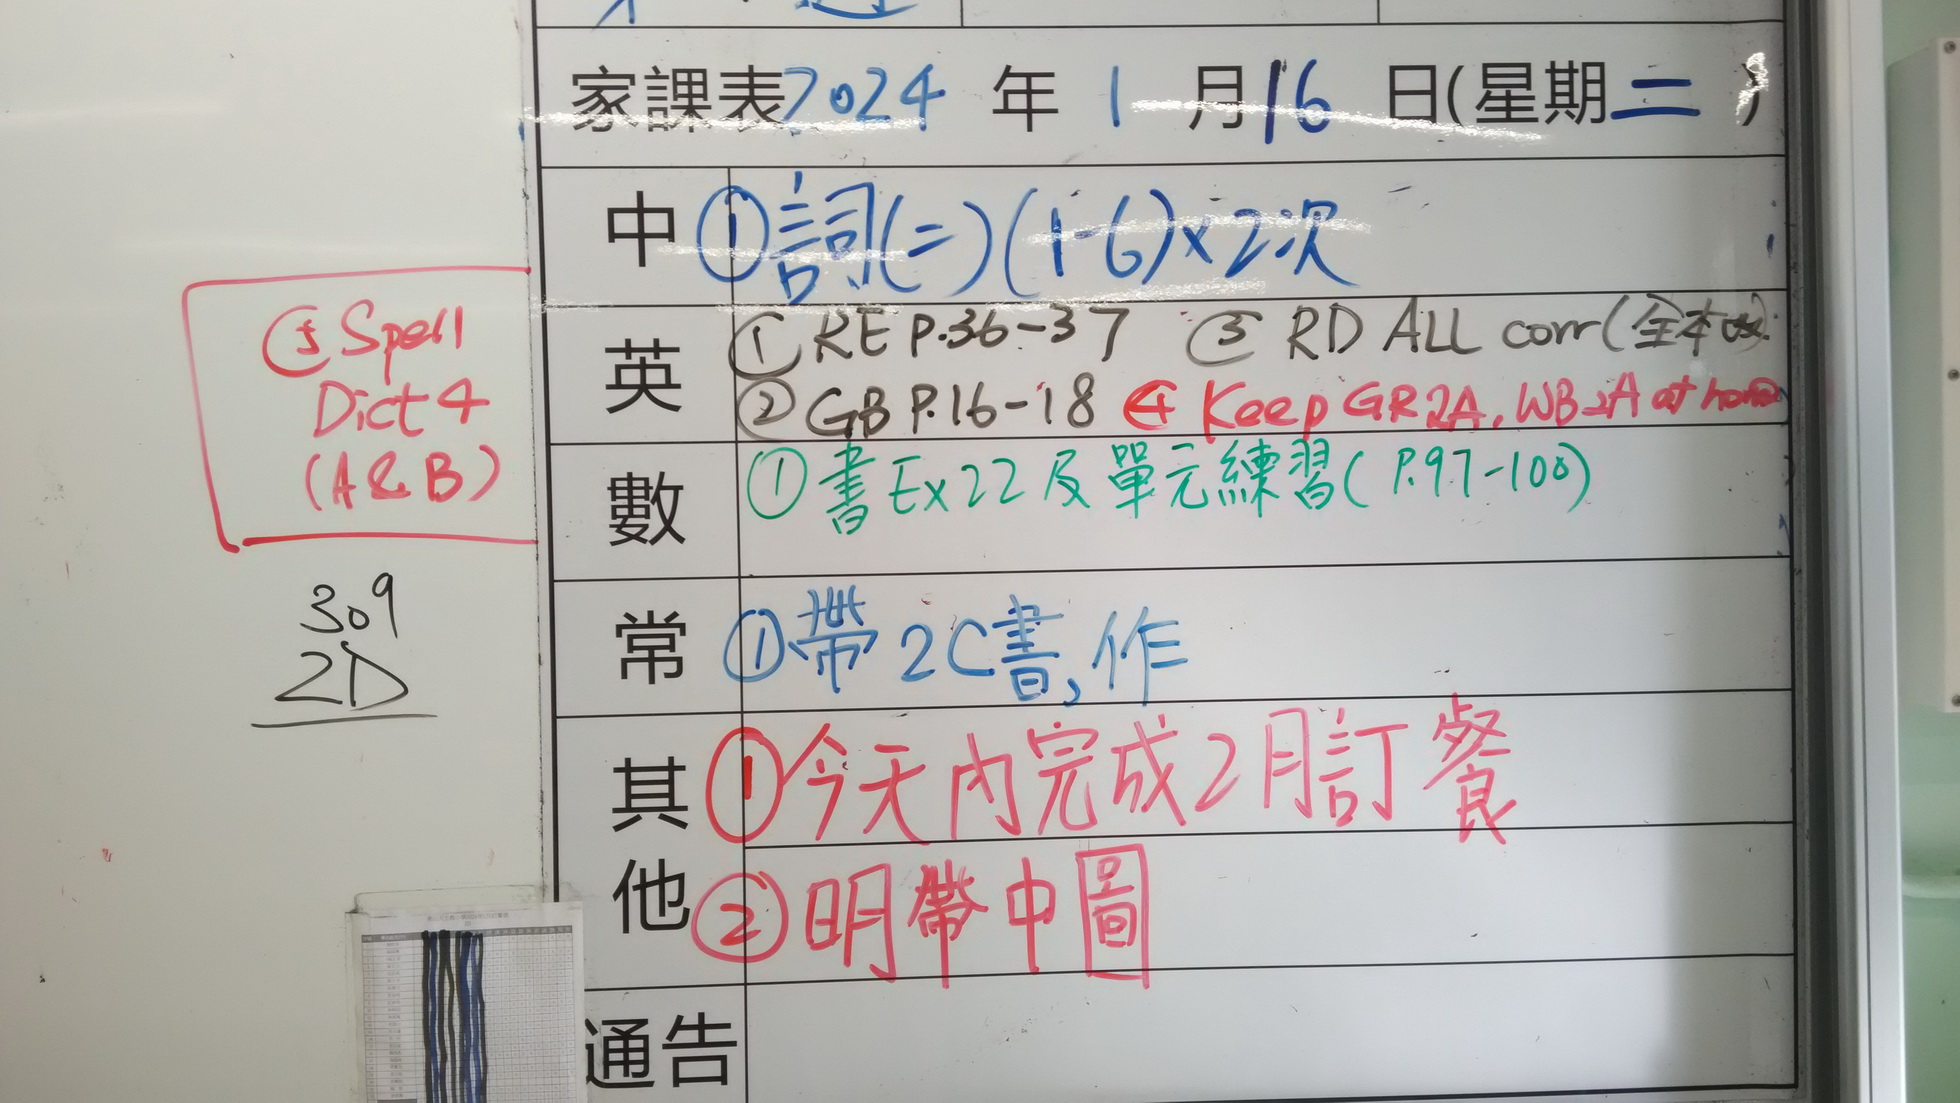 家課表2024年1月16日(星期二)
中 ①詞(二)(1-6)x2次
英 ①RE P.36-37 ③RD ALL corr(全本
②GB P.16-18 ④Keep GR2A, WB2A at home
⑤Spell
Dict 4
(A&B)
數 ①書Ex22及單元練習(P.97-100)
309
2D
常 ①帶2C書,作
其他 ①今天內完成2月訂餐
②明帶中圖
通告